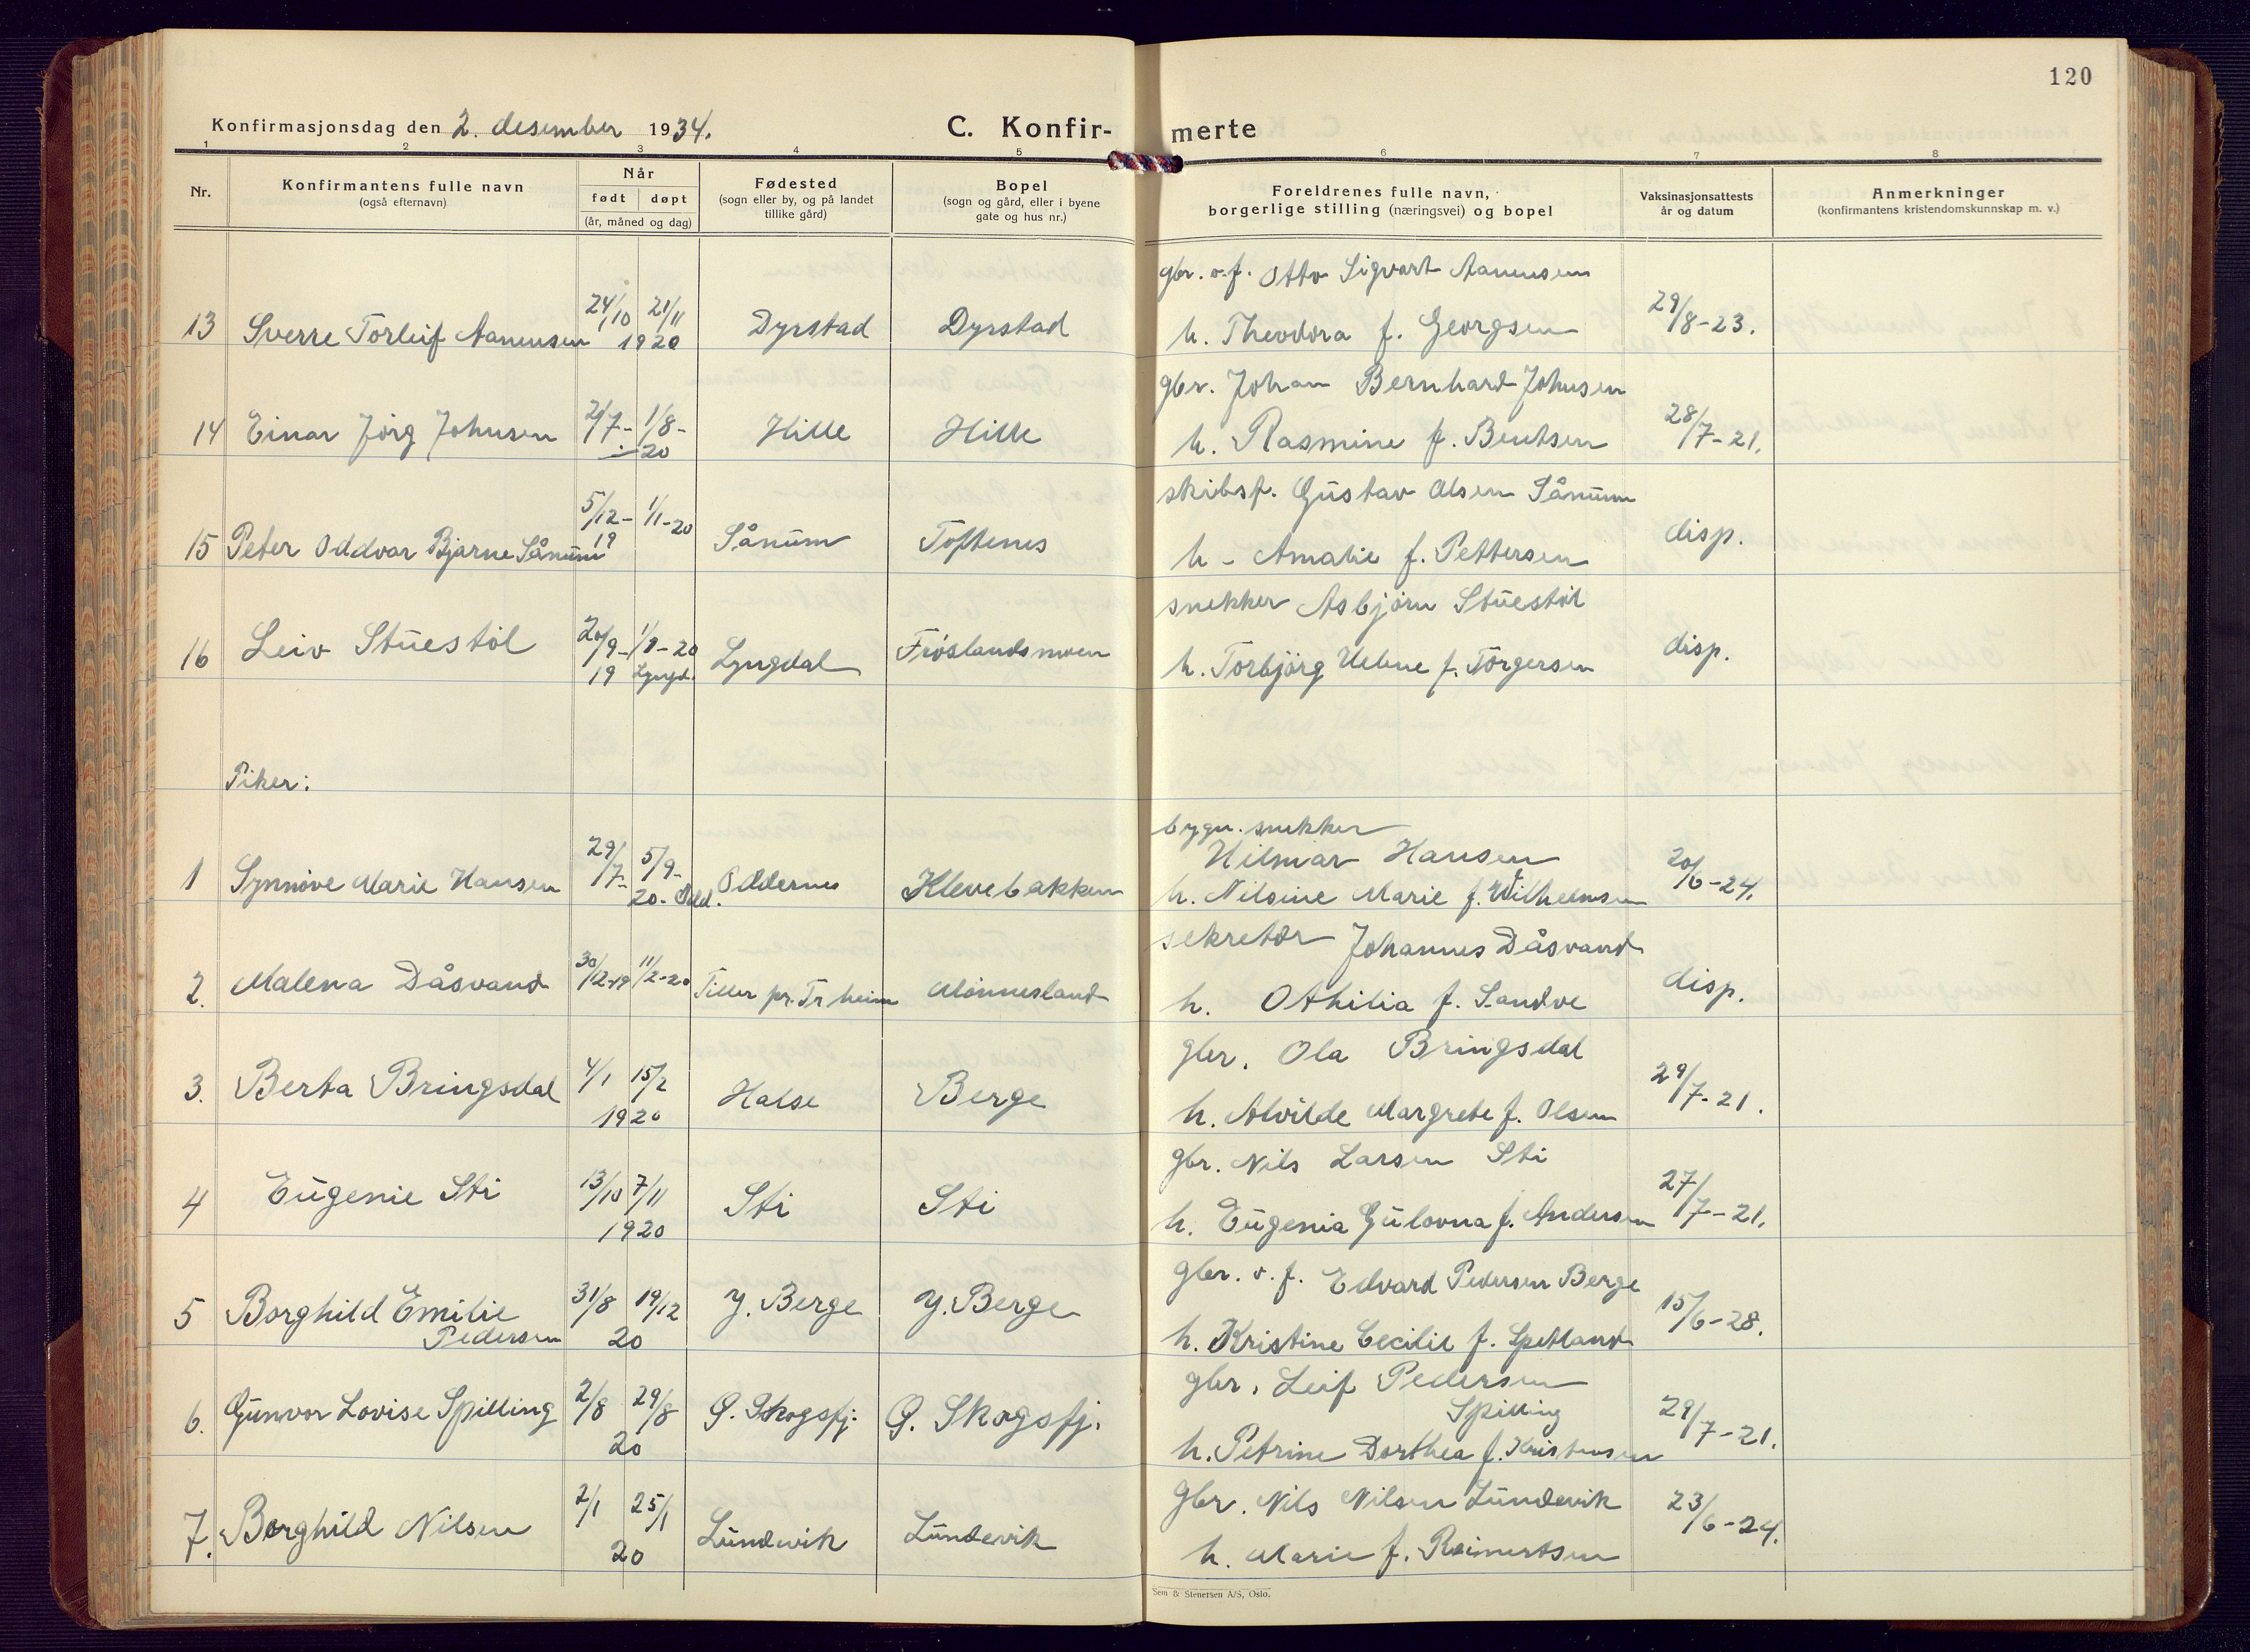 120
Konfirmasjonsdag den 2. desember 1934.
C. Konfir- merte
1 2 3 4 5 6 7 8
Nr.
Konfirmantens fulle navn
(også efternavn)
Når
født døpt
(år, måned og dag)
Fødested
(sogn eller by, og på landet
tillike gård)
Bopel
(sogn og gård, eller i byene
gate og hus nr.)
Foreldrenes fulle navn,
borgerlige stilling (næringsvei) og bopel
Vaksinasjonsattests
år og datum
Anmerkninger
(konfirmantens kristendomskunnskap m. v.)
gbr. o. f. Otto Sigvart Aanensen
13 Sverre Torleif Aanensen 24/10 21/11 1920 Dyrstad Dyrstad h. Theodora f. Georgsen 29/8-23.
gbr. Johan Bernhard Johnsen
14 Einar Jörg Johnsen 2/7- 1/8- 20 Hille Hille h. Rasmine f. Bentsen 28/7-21.
skibsf. Gustav Olsen Sånum
15 Peter Oddvar Bjarne Sånum 5/12-19 1/1-20 Sånum Toftenes h - Amalie f. Pettersen disp.
snekker Asbjörn Stuestöl
16 Leiv Stuestöl 20/9-19 1/1-20 Lyngd. Lyngdal Fröslandsmoen h. Torbjörg Helene f. Törgersen disp.
Piker:
bygn. snekker
Hilmar Hansen
1 Synnöve Marie Hansen 29/7- 5/9-20. Odd. Oddernes Klevebakken h. Nilsine Marie f. Wilhelmsen 20/6-24.
sekretær Johannes Dåsvand
2. Malena Dåsvand 30/12-19 11/2-20 Tiller pr. Tr.heim Mönnesland h. Othilia f. Sandve disp.
gbr. Ola Bringsdal
3. Berta Bringsdal 4/1 15/2 1920 Halse Berge h. Alvilde Margrete f. Olsen 29/7-21.
gbr. Nils Larsen Sti
4 Eugenie Sti 13/10 7/11 1920 Sti Sti h. Eugenia Gulovna f. Andersen 27/7-21.
gbr. o. f. Edvard Pedersen Berge
5 Borghild Emilie Pedersen 31/8 19/12 20 Y. Berge Y. Berge h. Kristine Cecilie f. Spetland 15/6-28.
gbr. Leif Pedersen
Spilling
6. Gunvor Lovise Spilling 2/8 29/8 20 G. Skogsfj. G. Skogsfj. h. Petrine Dorthea f. Kristensen 29/7-21.
gbr. Nils Nilsen Lundevik
7. Borghild Nilsen 2/1 25/1 20 Lundevik Lundevik h. Marie f. Reinertsen 23/6-24.
Sem & Stenersen A/S, Oslo.